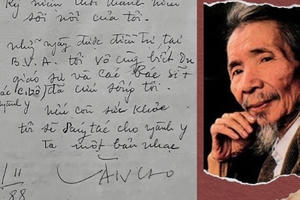 Kỷ niệm tuổi thanh niên
sôi nổi của tôi.
những ngày được điều trị tại
B.V.A. tôi vô cùng biết ơn
giáo sư và các bác sĩ +
đã cứu sống tôi.
nếu còn sức khỏe
tôi sẽ sáng tác cho ngành y
ta một bản nhạc
11
88
VĂN CAO